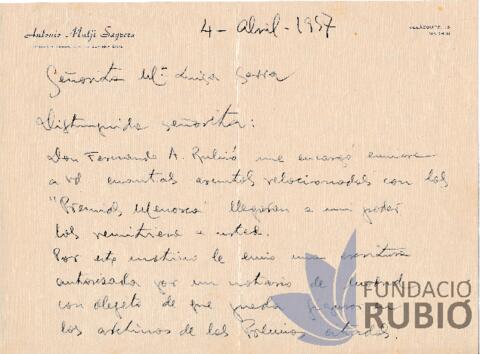 Antonio Mutjé Sagrera
4 - Abril - 1957
VELÁZQUEZ, 15
MADRID
Señorita Mª Luisa Serra
Distinguida señorita:
Don Fernando A. Rubió me encargó enviara
a Vd cuantos asuntos relacionados con los
"Premios Menorca" llegaran a mi poder
los remitiera a usted.
Por este motivo le envio una escritura
autorizada por un notario de Madrid
con objeto de que pueda figurar en
los archivos de los Premios citados.
FUNDACIÓ
RUBIÓ